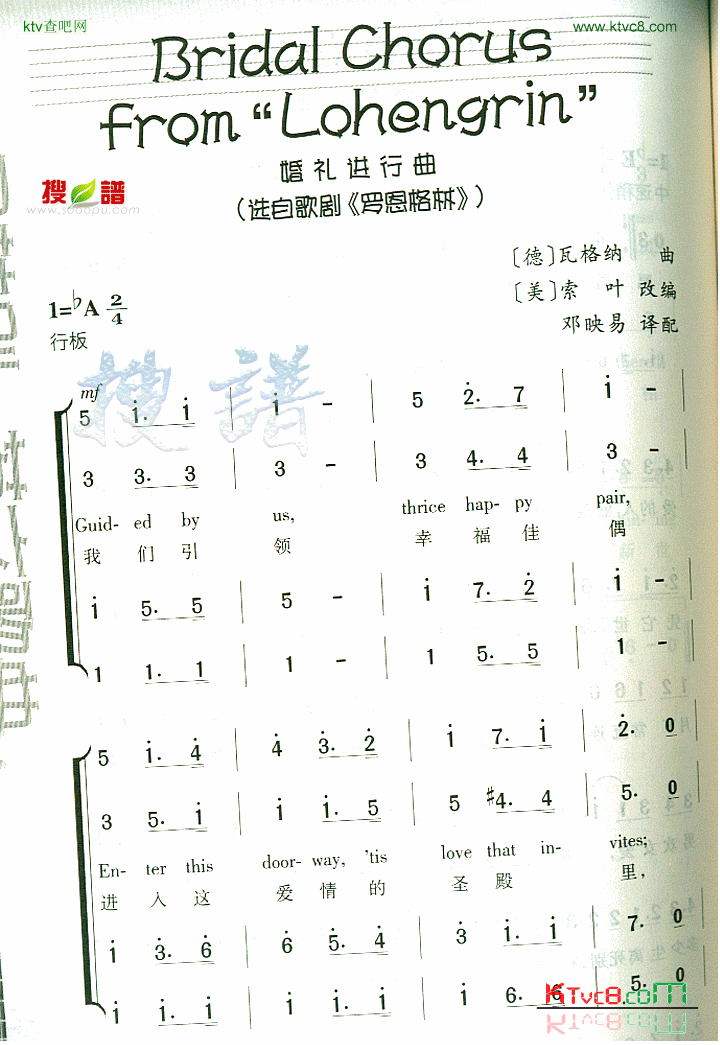 ktv查吧网
www.ktvc8.com
Bridal Chorus
from “Lohengrin”
婚礼进行曲
(选自歌剧《罗恩格林》)
搜谱
www.sooopu.com
〔德〕瓦格纳 曲
1=♭A 2/4
〔美〕索 叶 改编
行板
邓映易 译配
搜谱
mf
5 i̇. i̇ | i̇ - | 5 2̇. 7 | i̇ - |
3 3. 3 | 3 - | 3 4. 4 | 3 - |
Guid- ed by us, thrice hap- py pair,
我 们 引 领 幸 福 佳 偶
i̇ 5. 5 | 5 - | i̇ 7. 2̇ | i̇ - |
1 1. 1 | 1 - | 1 5. 5 | 1 - |
5 i̇. 4̇ | 4̇ 3̇. 2̇ | i̇ 7. i̇ | 2̇. 0
3 5. i̇ | i̇ i̇. 5 | 5 #4. 4 | 5. 0
En- ter this door- way, 'tis love that in- vites;
进 入 这 爱 情 的 圣 殿 里,
i̇ 3̇. 6̇ | 6̇ 5̇. 4̇ | 3̇ i̇. i̇ | 7. 0
i̇ i̇. i̇ | i̇ i̇. i̇ | i̇ 6. 6 | 5. 0
KTvc8.com